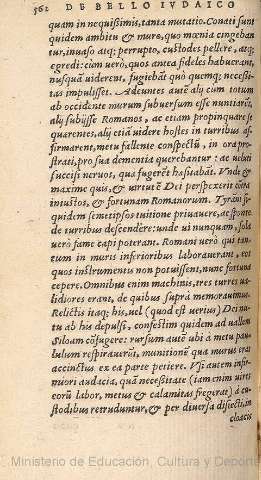 562 DE BELLO IVDAICO
quam in nequissimis, tanta mutatio. Conati sunt
quidem ambitu & muro, quo mœnia cingeban
tur, inuaso atq; perrupto, custodes pellere, atq;
egredi: cùm verò, quos antea fideles habuerant,
nusquã uiderent, fugiebãt quò quemq; necessi
tas impulisset. Aduentes autẽ alij cum totum
ab occidente murum subuersum esse nuntiarẽt,
alij subijsse Romanos, ac etiam propinquare se
quærentes, alij etiã videre hostes in turribus af-
firmarent, metu fallente conspectũ, in ora pro-
strati, pro sua dementia querebantur: ac uelati
succisi neruos, qua fugerẽt hæsitabãt. Vnde &
maxime quis, & virtutẽ Dei perspexerit cõtra
iniustos, & fortunam Romanorum. Tyranni
quidem semetipsos tuitione priuauere, ac sponte
de turribus descendere: unde ui nunquam, sola
uerò fame capi poterant. Romani uerò qui tan-
tum in muris inferioribus laborauerant, eos
quos instrumentis non potuissent, nunc fortuna
cepere. Omnibus enim machinis, tres turres ua-
lidiores erant, de quibus suprà memorauimus.
Relictis itaq; his, uel (quod est verius) Dei nu-
tu ab his depulsi, confestim quidem ad uallem
Siloam cõfugere: rursum autẽ ubi à metu pau-
lulum respirauerũt, munitionẽ qua murus erat
accinctus ex ea parte petiere. Vsi autem infir-
miori audacia, quã necessitate (iam enim uires
eorũ labor, metus & calamitas fregerat) à cu-
stodibus retruduntur, & per diuersa disiecti, in
cloacis
Ministerio de Educación, Cultura y Deporte